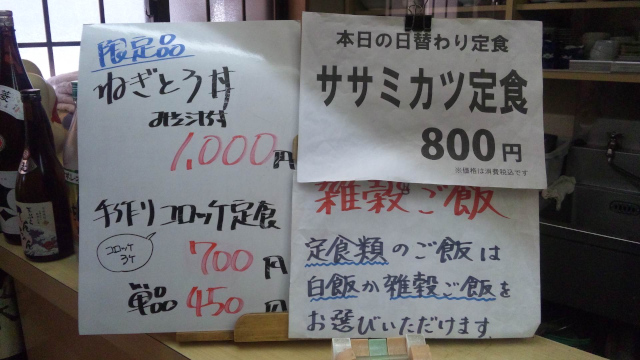 限定品
ねぎとろ丼
みそ汁付
1,000円
手作りコロッケ定食
コロッケ
3ケ
700円
単品 450円
本日の日替わり定食
ササミカツ定食
800円
※価格は消費税込です
雑穀ご飯
定食類のご飯は
白飯か雑穀ご飯を
お選びいただけます